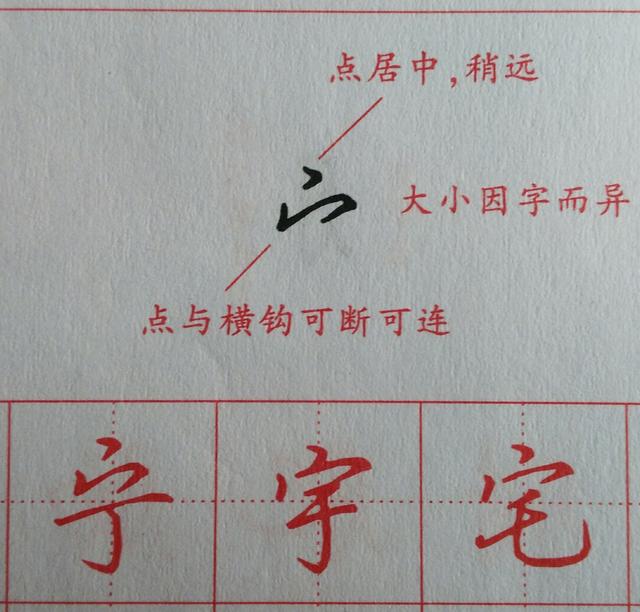 点居中,稍远
宀
大小因字而异
点与横钩可断可连
宁宇宅